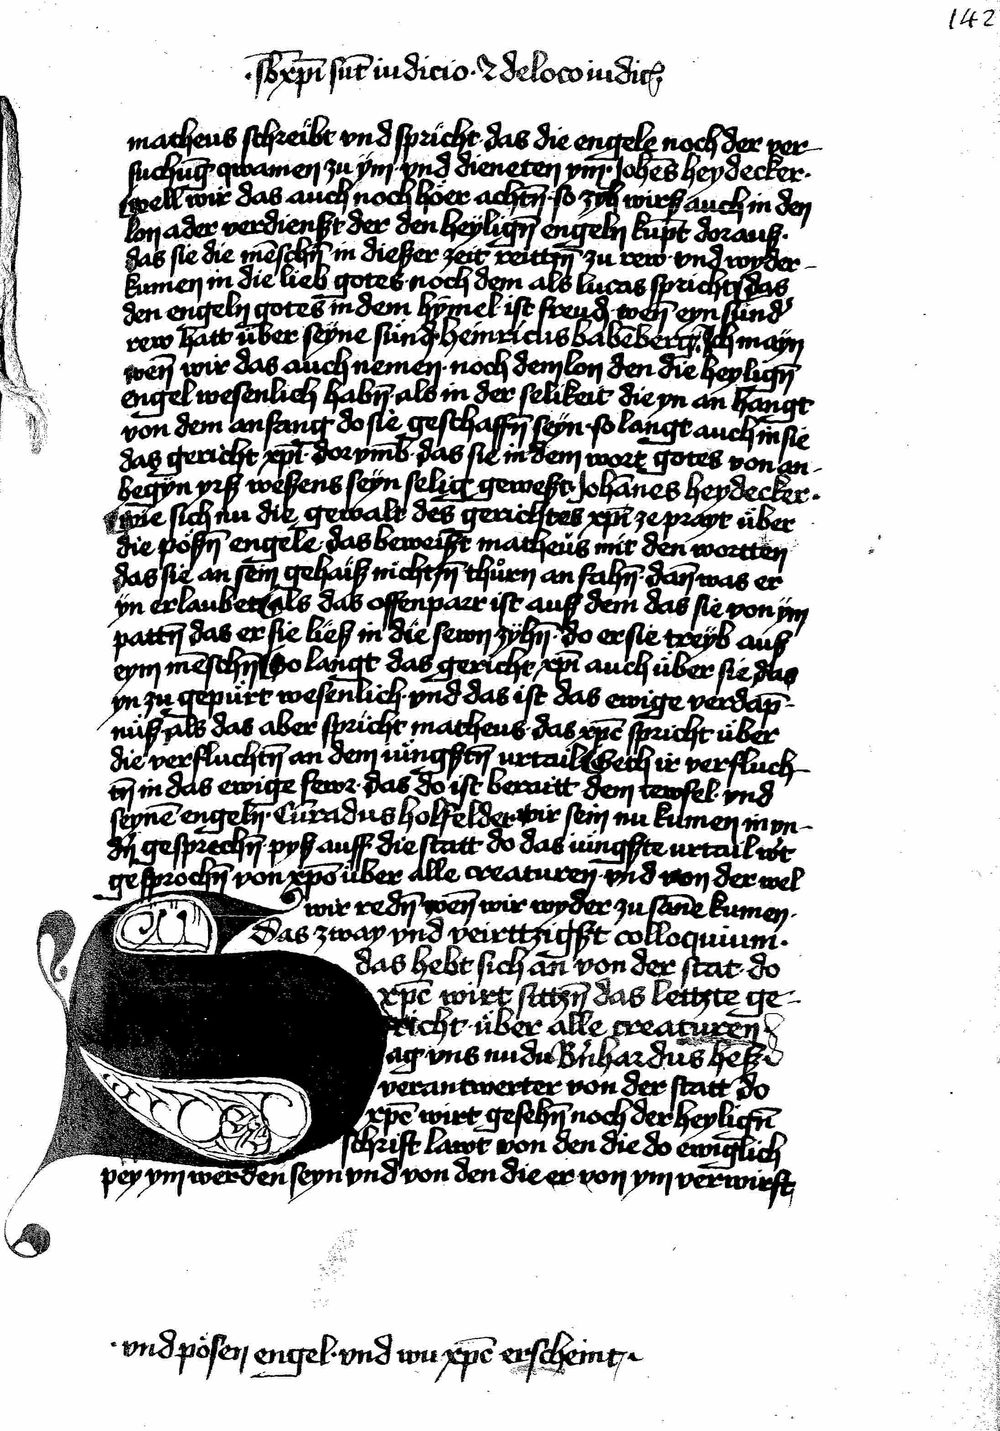 142
·sb xpī sūt iudicio · ⁊ de loco iudicȝ
matheus schreibt vnd spricht das die engele noch der ver-
suchūg qwamen zu ym vnd dieneten ym · Johēs heydecker ·
well wir das auch noch höer achtn̄ · so zyh wirß auch in den
lon ader verdienßt der den heylign̄ engeln kūpt dorauß ·
das sie die mēschn̄ in dießer zeit reittn̄ zu rew · vnd wyder-
kumen in die lieb gotes noch dem als lucas spricht das
den engeln gotes in dem hȳmel ist freud · wen̄ eyn sünd᾽
rew hatt über seyne sünd · heinricus babēberg᾽ · Ich mayn
wen̄ wir das auch nemen · noch dem lon den die heylign̄
engel wesenlich habn̄ · als in der selikeit die yn an hangt
von dem anfang do sie geschaffn̄ seyn · so langt auch in sie
das gericht xpī · dorvmb das sie in dem wort gotes von an-
begyn yrß weßens seyn selig geweßt · Johānes heydecker ·
wie sich nu die gewalt des gerichtes xpī ze prayt über
die pößn̄ engele · das beweißt matheüs mit den wortten
das sie an sein gehaiß nichtßn̄ thürn an fahn̄ · dan̄ was er
yn erlaubet als das offenparr ist auß dem das sie von ym
pattn̄ das er sie ließ in die sewn zyhn̄ · do er sie treyb auß
eym mēschn̄ So langt das gericht xpī auch über sie das
yn zu gepürt wesenlich · vnd das ist das ewige verdāp-
nüß · als das aber spricht matheus · das xpc̄ spricht über
die verfluchtn̄ an dem iüngßtn̄ vrtail Geth ir verfluch
tn̄ in das ewige fewr · das do ist beraitt dem tewfel · vnd
seynē engeln̄ · Cūradus holfelder wir sein nu kumen in vn-
dn̄ gesprechn̄ · pyß auff die statt do das iüngßte vrtail w᾽t
gesprochn̄ von xpō über alle creaturen · vnd von der wel
wir redn̄ wen̄ wir wyder zu sāne kumen ·
Das zway vnd veirttzigßt colloquium ·
das hebt sich an von der stat · do
xpc̄ wirt sittzn̄ das lettzte ge-
richt · über alle creaturen
ag vns nu du B᾽nhardus heß
verantwerter von der statt do
xpc̄ wirt gesehn̄ noch der heylign̄
schrift lawt von den die do ewiglich
pey ym werden seyn vnd von den die er von ym verwirft
· vnd pösen engel · vnd wu xpc̄ erscheint ·